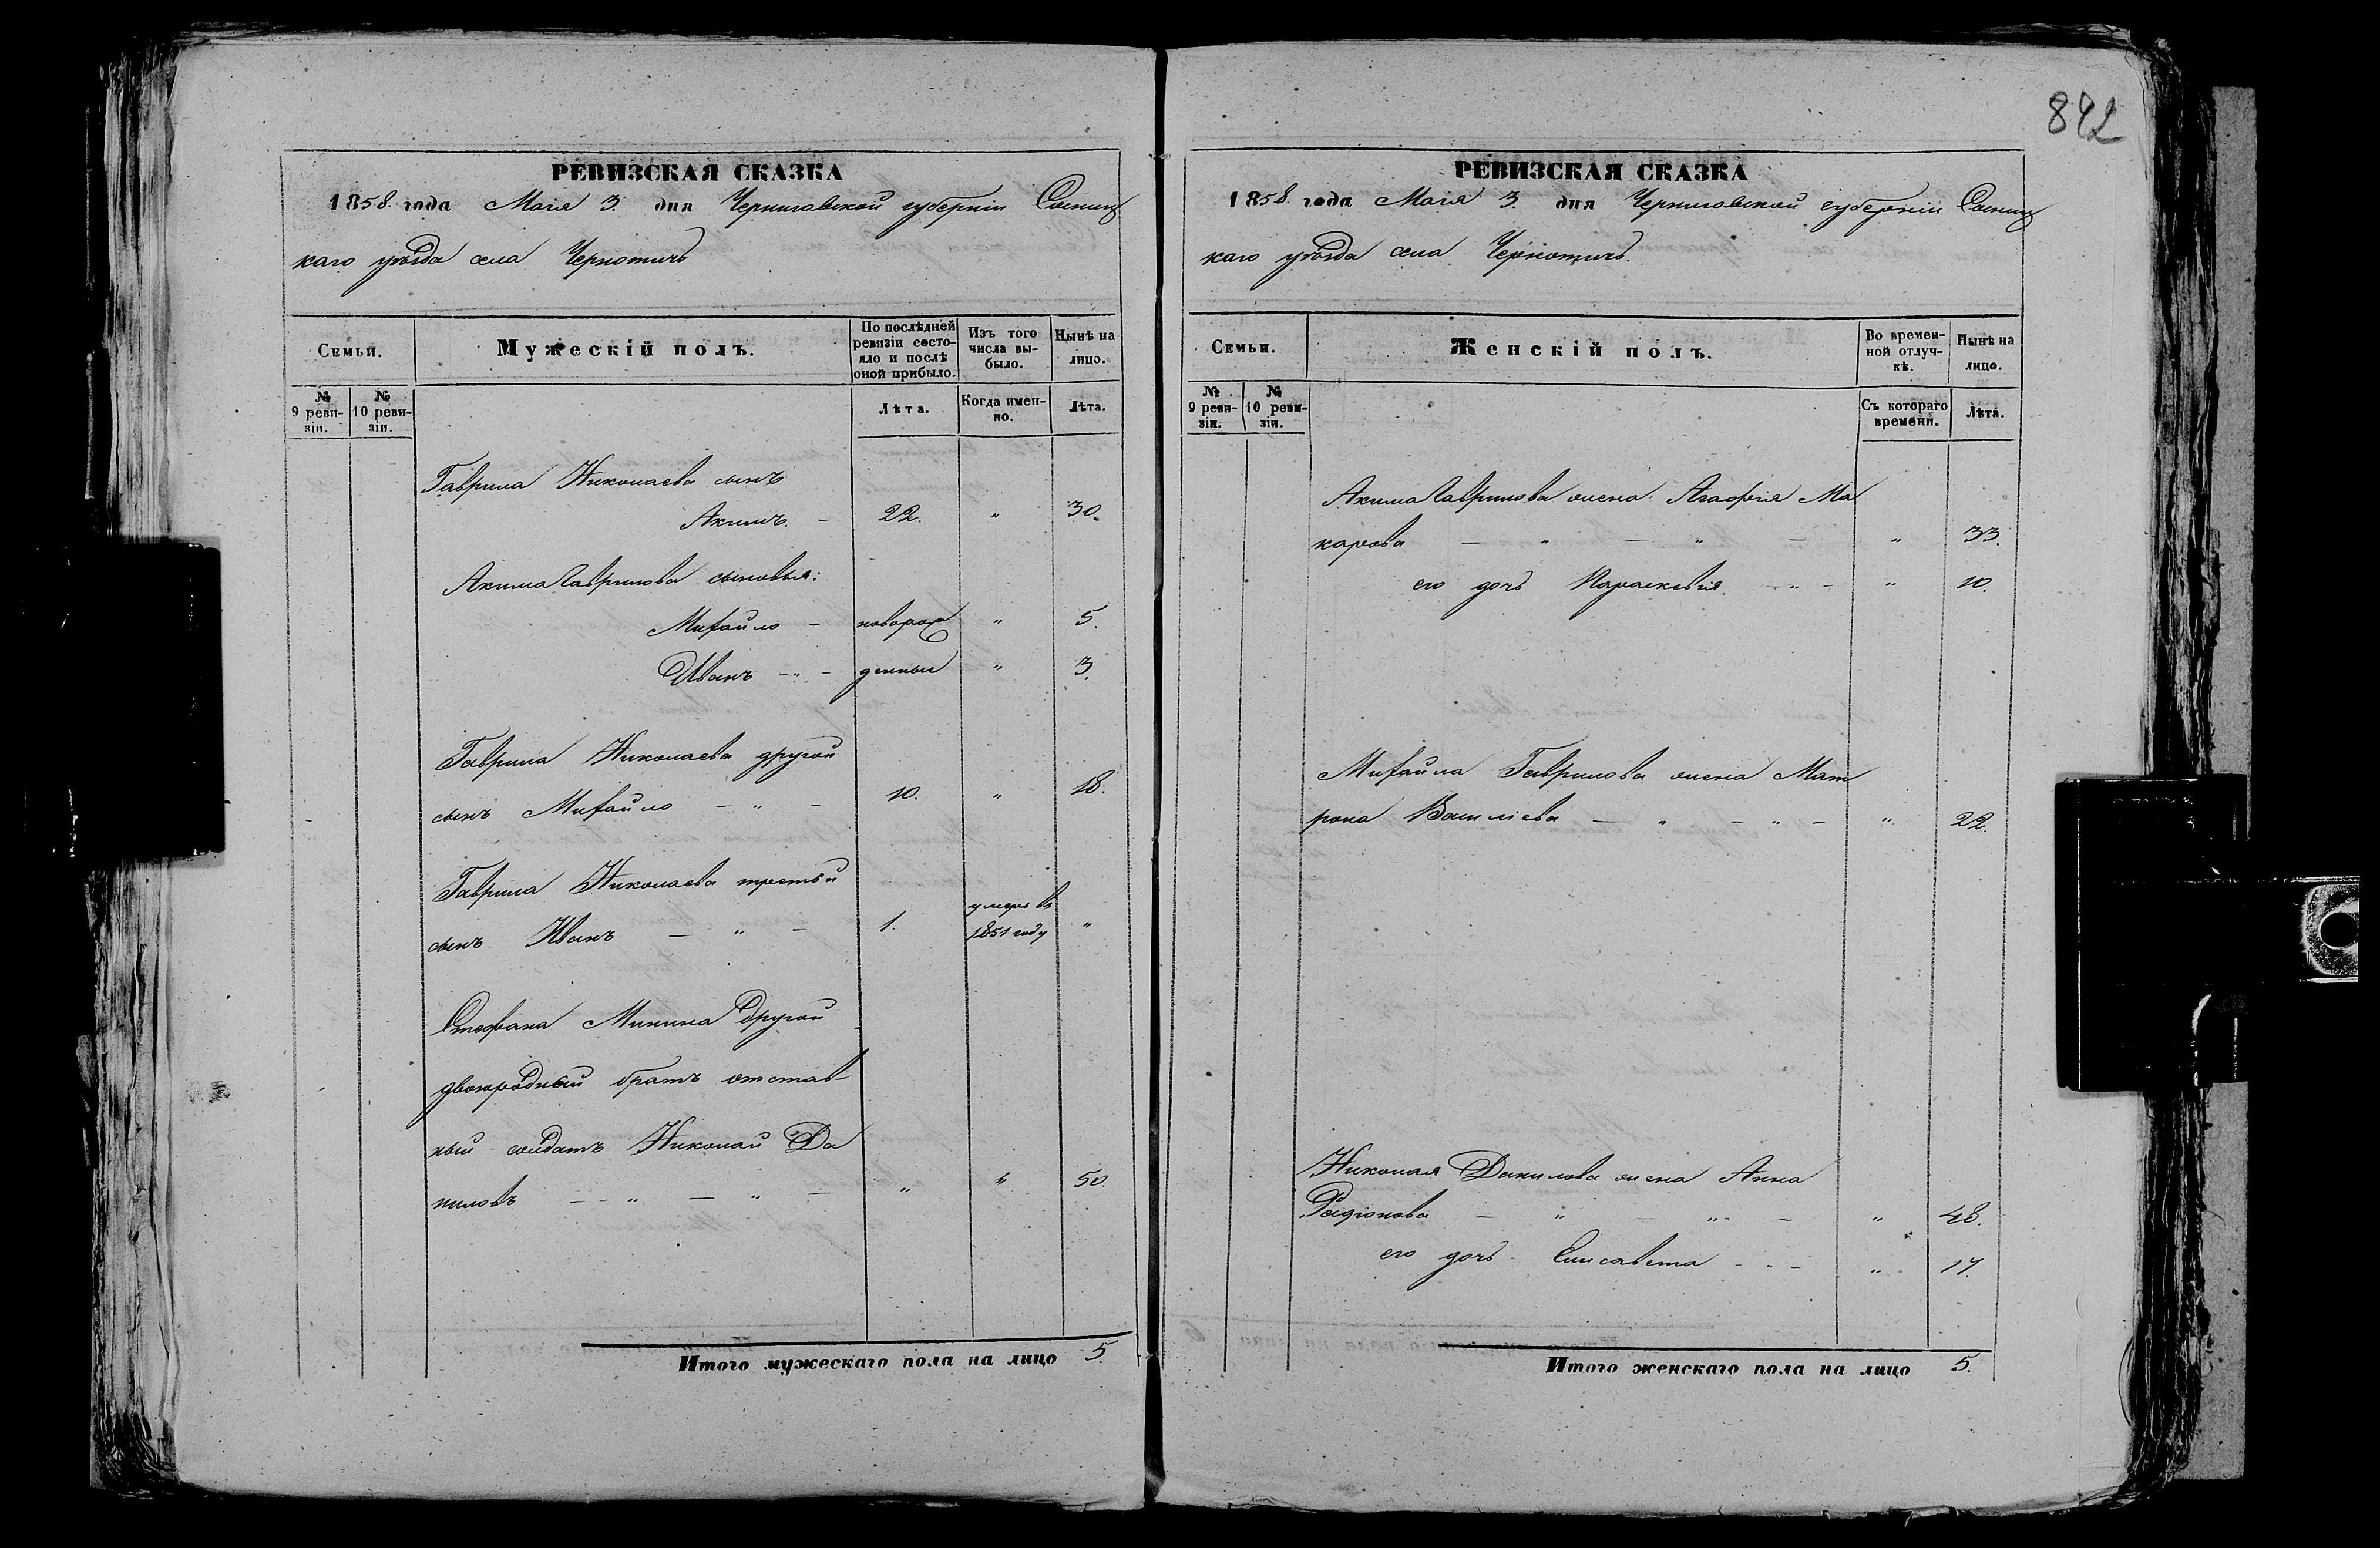 842
РЕВИЗСКАЯ СКАЗКА
1858. года Маія 3. дня Черниговской губерніи Сосниц
каго уѣзда села Чернотичь
Семьи.
Мужескій полъ.
По послѣдней ревизіи состояло и послѣ оной прибыло.
Изъ того числа выбыло.
Нынѣ на лицо.
№ 9 ревизіи.
№ 10 ревизіи.
Лѣта.
Когда именно.
Лѣта.
Гаврила Николаева сынъ
Акимъ. – 22. „ 30.
Акима Гаврилова сыновья:
Михайло – новорож „ 5.
Иванъ – „ – денные „ 3.
Гаврила Николаева другой
сынъ Михайло – „ – 10. „ 18.
Гаврила Николаева третьй
сынъ Иванъ – „ – 1. умеръ въ 1851 году „
Стефана Минина другой
двоюродный братъ отстав
ный солдатъ Николай Да
ниловъ – „ – „ – „ „ 50.
Итого мужескаго пола на лицо 5.
РЕВИЗСКАЯ СКАЗКА
1858. года Маія 3. дня Черниговской губерніи Сосниц
каго уѣзда села Чернотичь.
Семьи.
Женскій полъ.
Во временной отлучкѣ.
Нынѣ на лицо.
№ 9 ревизіи.
№ 10 ревизіи.
Съ котораго времени.
Лѣта.
Акима Гаврилова жена Агафія Ма
карова – „ – „ – „ 33.
его дочь Параскевія – „ – „ 10.
Михайла Гаврилова жена Мат
рона Василіева – „ – „ – „ 22.
Николая Данилова жена Анна
Родіонова – „ – „ – „ 48.
его дочь Елисавета – „ – „ 17.
Итого женскаго пола на лицо 5.